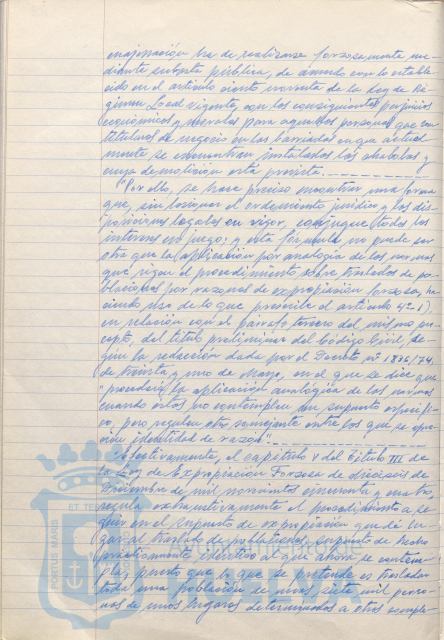 enajenación ha de realizarse forzosamente me-
diante subasta pública, de acuerdo con lo estable-
cido en el artículo ciento noventa de la Ley de Ré-
gimen Local vigente, con los consiguientes perjuicios
económicos y morales para aquellas personas que son
titulares de negocio en las barriadas en que actual-
mente se encuentran instaladas las chabolas y
cuya demolición está prevista.
"Por ello, se hace preciso encontrar una forma
que, sin lesionar el ordenamiento jurídico y las dis-
posiciones legales en vigor, conjugue todos los
intereses en juego; y esta fórmula no puede ser
otra que la aplicación por analogía de las normas
que rigen el procedimiento sobre traslados de po-
blaciones por razones de expropiación forzosa, ha-
ciendo uso de lo que previene el artículo 4º-1),
en relación con el párrafo tercero del mismo pre-
cepto, del título preliminar del Código Civil, se-
gún la redacción dada por el Decreto nº 1836/74,
de treinta y uno de Mayo, en el que se dice que
"procederá la aplicación analógica de las normas
cuando éstas no contemplen un supuesto específi-
co, pero regulen otro semejante entre los que se apre-
cie identidad de razón".
"Efectivamente, el capítulo V del Título III de
la Ley de Expropiación Forzosa de dieciséis de
Diciembre de mil novecientos cincuenta y cuatro,
regula exhaustivamente el procedimiento a se-
guir en el supuesto de expropiación que dé lu-
gar al traslado de poblaciones, supuesto de hecho
prácticamente idéntico al que ahora se contem-
pla, puesto que lo que se pretende es trasladar
toda una población de unas siete mil perso-
nas de unos lugares determinados a otros comple-
PORTUS MARIS ET TERRAE